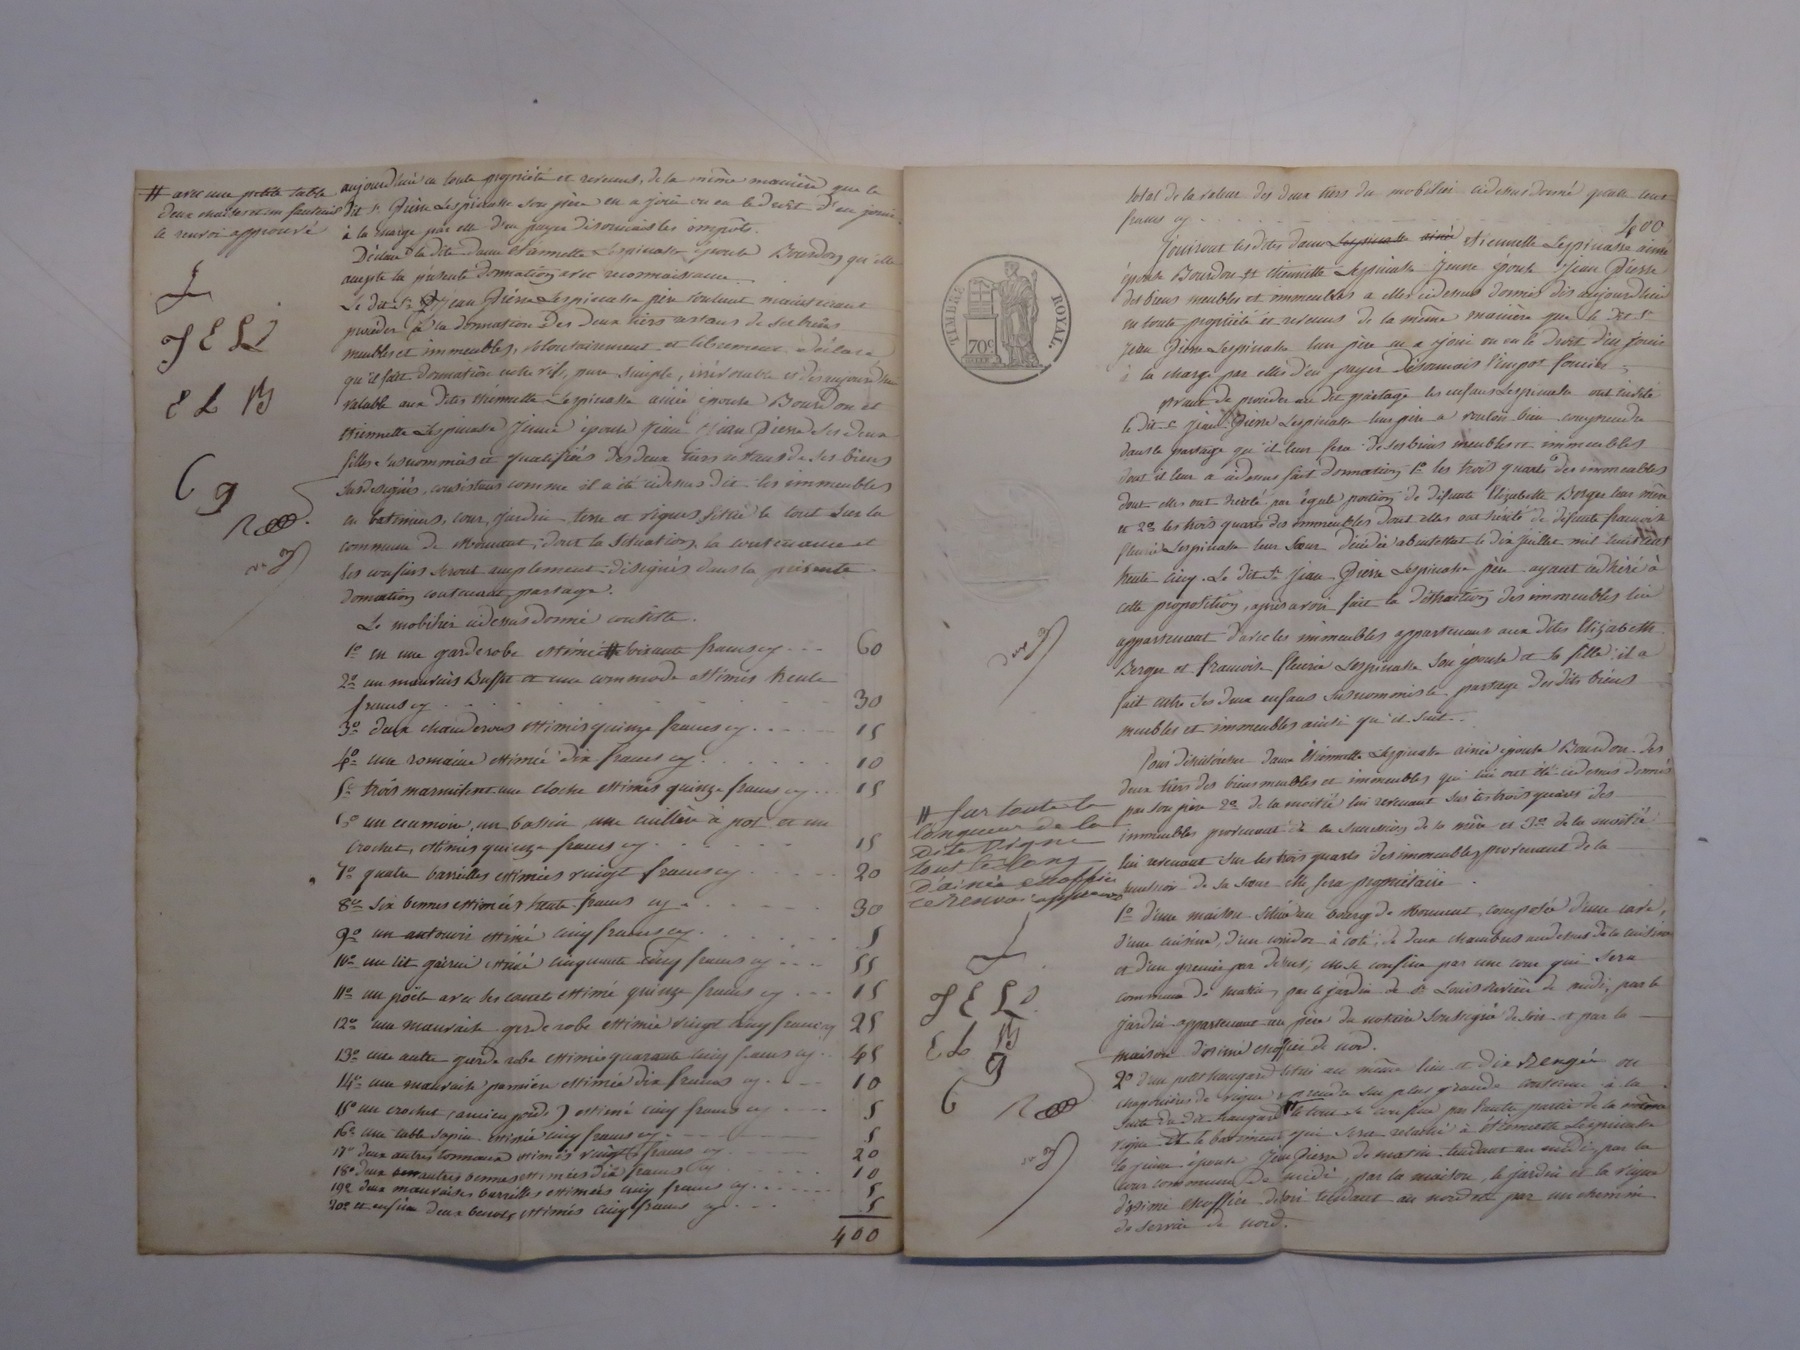 # avec une petite table
deux chaises et un fauteuil
le renvoi approuvé
J E L
E L B
C g
aujourd'hui en toute propriété et revenus, de la même manière que le
dit Sr Pierre Lespinasse son père en a joui ou eu le droit d'en jouir
à la charge par elle d'en payer désormais les impôts.
Déclare la dite dame Etiennette Lespinasse épouse Bourdon qu'elle
accepte la présente donation avec reconnaissance.
Le dit Sr Jean Pierre Lespinasse père voulant maintenant
procéder à la donation des deux tiers restans de ses biens
meubles et immeubles, volontairement et librement déclare
qu'il fait donation entre vifs, pure simple, irrévocable et dès aujourd'hui
valable aux dites Etiennette Lespinasse ainée épouse Bourdon et
Etiennette Lespinasse jeune épouse Jean Pierre ses deux
filles susnommées et qualifiées des deux tiers restans de ses biens
susdésignés, consistans comme il a été cidessus dit les immeubles
en batimens, cour, jardin, terre et vignes, situé le tout sur la
commune de Mornant, dont la situation, la contenance et
les confins seront amplement désignés dans la présente
donation contenant partage.
Le mobilier cidessus donné consiste.
1o en une garderobe estimée # soixante francs cy 60
2o un mauvais Buffet et une commode estimés trente
francs cy 30
3o deux chauderons estimés quinze francs cy 15
4o une romaine estimée dix francs cy 10
5o trois marmites et une cloche estimés quinze francs cy 15
6o un écumoire, un bassin, une cuillère à pot et un
crochet, estimés quinze francs cy 15
7o quatre barrilles estimées vingt francs cy 20
8o six bennes estimées trente francs cy 30
9o un entonoir estimé cinq francs cy 5
10o un lit garni estimé cinquante cinq francs cy 55
11o un poële avec les cornets estimé quinze francs cy 15
12o une mauvaise garderobe estimée vingt cinq francs cy 25
13o une autre garde robe estimée quarante cinq francs cy 45
14o une mauvaise estimée dix francs cy 10
15o un crochet (ancien poids) estimé cinq francs cy 5
16o une table sapin estimée cinq francs cy 5
17o deux autres tonneaux estimés vingt francs cy 20
18o deux autres bennes estimées dix francs cy 10
19o deux mauvaises barrilles estimées cinq francs cy 5
20o et enfin deux estimés cinq francs cy 5
400
TIMBRE ROYAL.
70c
total de la valeur des deux tiers du mobilier cidessus donné quatre cent
francs cy 400
Jouiront les dites dames Lespinasse ainée Etiennette Lespinasse ainée
épouse Bourdon et Etiennette Lespinasse jeune épouse Jean Pierre
des biens meubles et immeubles a elles cidessus donnés dès aujourd'hui
en toute propriété et revenus de la même manière que le dit Sr
Jean Pierre Lespinasse leur père en a joui ou eu le droit d'en jouir
à la charge par elles d'en payer désormais l'impot foncier.
Avant de procéder au dit partage les enfans Lespinasse ont invité
le dit Sr Jean Pierre Lespinasse leur père a vouloir bien comprendre
dans le partage qu'il leur fera de ses biens meubles et immeubles
dont il leur a cidessus fait donation 1o les trois quarts des immeubles
dont elles ont hérité par égale portion de défunte Elizabette Berger leur mère
et 2o les trois quarts des immeubles dont elles ont hérité de défunte francoise
fleurie Lespinasse leur sœur décédée abintestat le dix juillet mil huit cent
trente cinq. Le dit Sr Jean Pierre Lespinasse père ayant adhéré à
cette proposition, après avoir fait la distraction des immeubles lui
appartenant d'avec les immeubles appartenant aux dites Elizabeth
Berger et francoise fleurie Lespinasse son épouse et sa fille, il a
fait entre ses deux enfans susnommés le partage des dits biens
meubles et immeubles ainsi qu'il suit.
Pour désintéresser dame Etiennette Lespinasse ainée épouse Bourdon des
deux tiers des biens meubles et immeubles qui lui ont été cidessus donnés
par son père 2o de la moitié lui revenant sur les trois quarts des
immeubles provenant de la succession de sa mère et 3o de la moitié
lui revenant sur les trois quarts des immeubles provenant de la
succession de sa sœur elle sera propriétaire.
1o d'une maison située au bourg de Mornant, composée d'une cave,
d'une cuisine, d'un corridor à coté, de deux chambres audessus de la cuisine
et d'un grenier par dessus, elle se confine par une cour qui sera
commune de matin, par le jardin de Sr Louis de midi, par le
jardin appartenant au père du notaire soussigné de soir et par la
maison d'aimé de nord.
2o d'un petit hangard situé au même lieu et dix rangées ou
de vigne à prendre sur plus grande contenue à la
suite du dit hangard # le tout se confine par l'autre partie de la même
vigne et le batiment qui sera relaché à Etiennette Lespinasse
la jeune épouse Jean Pierre de matin tendant au midi, par la
cour commune de midi, par la maison, le jardin et la vigne
d'aimé de soir tendant au nord et par un chemin
de service de nord.
# sur toute la
longueur de la
dite vigne
tout le long
d'aimé
ce renvoi approuvé
J E L
E L B
g
C